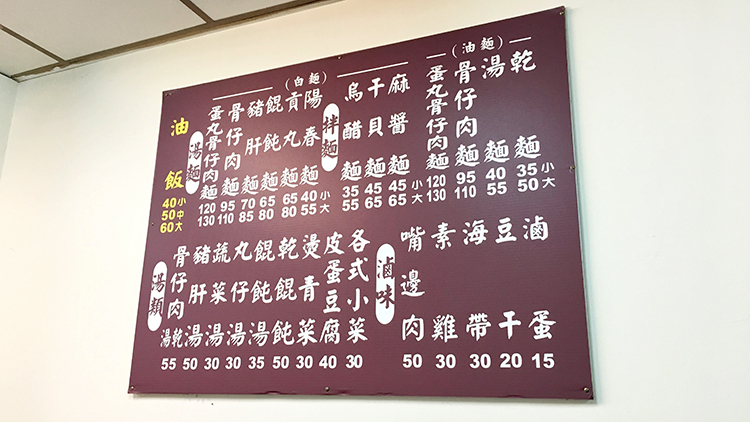 (油麵)
乾麵 35小 50大
湯麵 40 55
骨仔肉麵 95 110
蛋丸骨仔肉麵 120 130
麻醬麵 45小 65大
干貝麵 45 65
烏醋麵 35 55
拌麵
(白麵)
陽春麵 40小 55大
貢丸麵 65 80
餛飩麵 65 80
豬肝麵 70 85
骨仔肉麵 95 110
蛋丸骨仔肉麵 120 130
湯麵
油飯
40小
50中
60大
滷蛋 15
豆干 20
海帶 30
素雞 30
嘴邊肉 50
滷味
各式小菜 30
皮蛋豆腐 40
燙青菜 30
乾餛飩 50
餛飩湯 35
丸仔湯 30
蔬菜湯 30
豬肝湯 50
骨仔肉湯乾 55
湯類